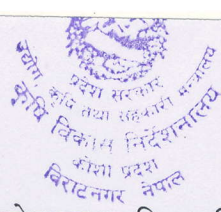 प्रदेश सरकार
उद्योग, कृषि तथा सहकारी मन्त्रालय
कृषि विकास निर्देशनालय
कोशी प्रदेश
बिराटनगर नेपाल